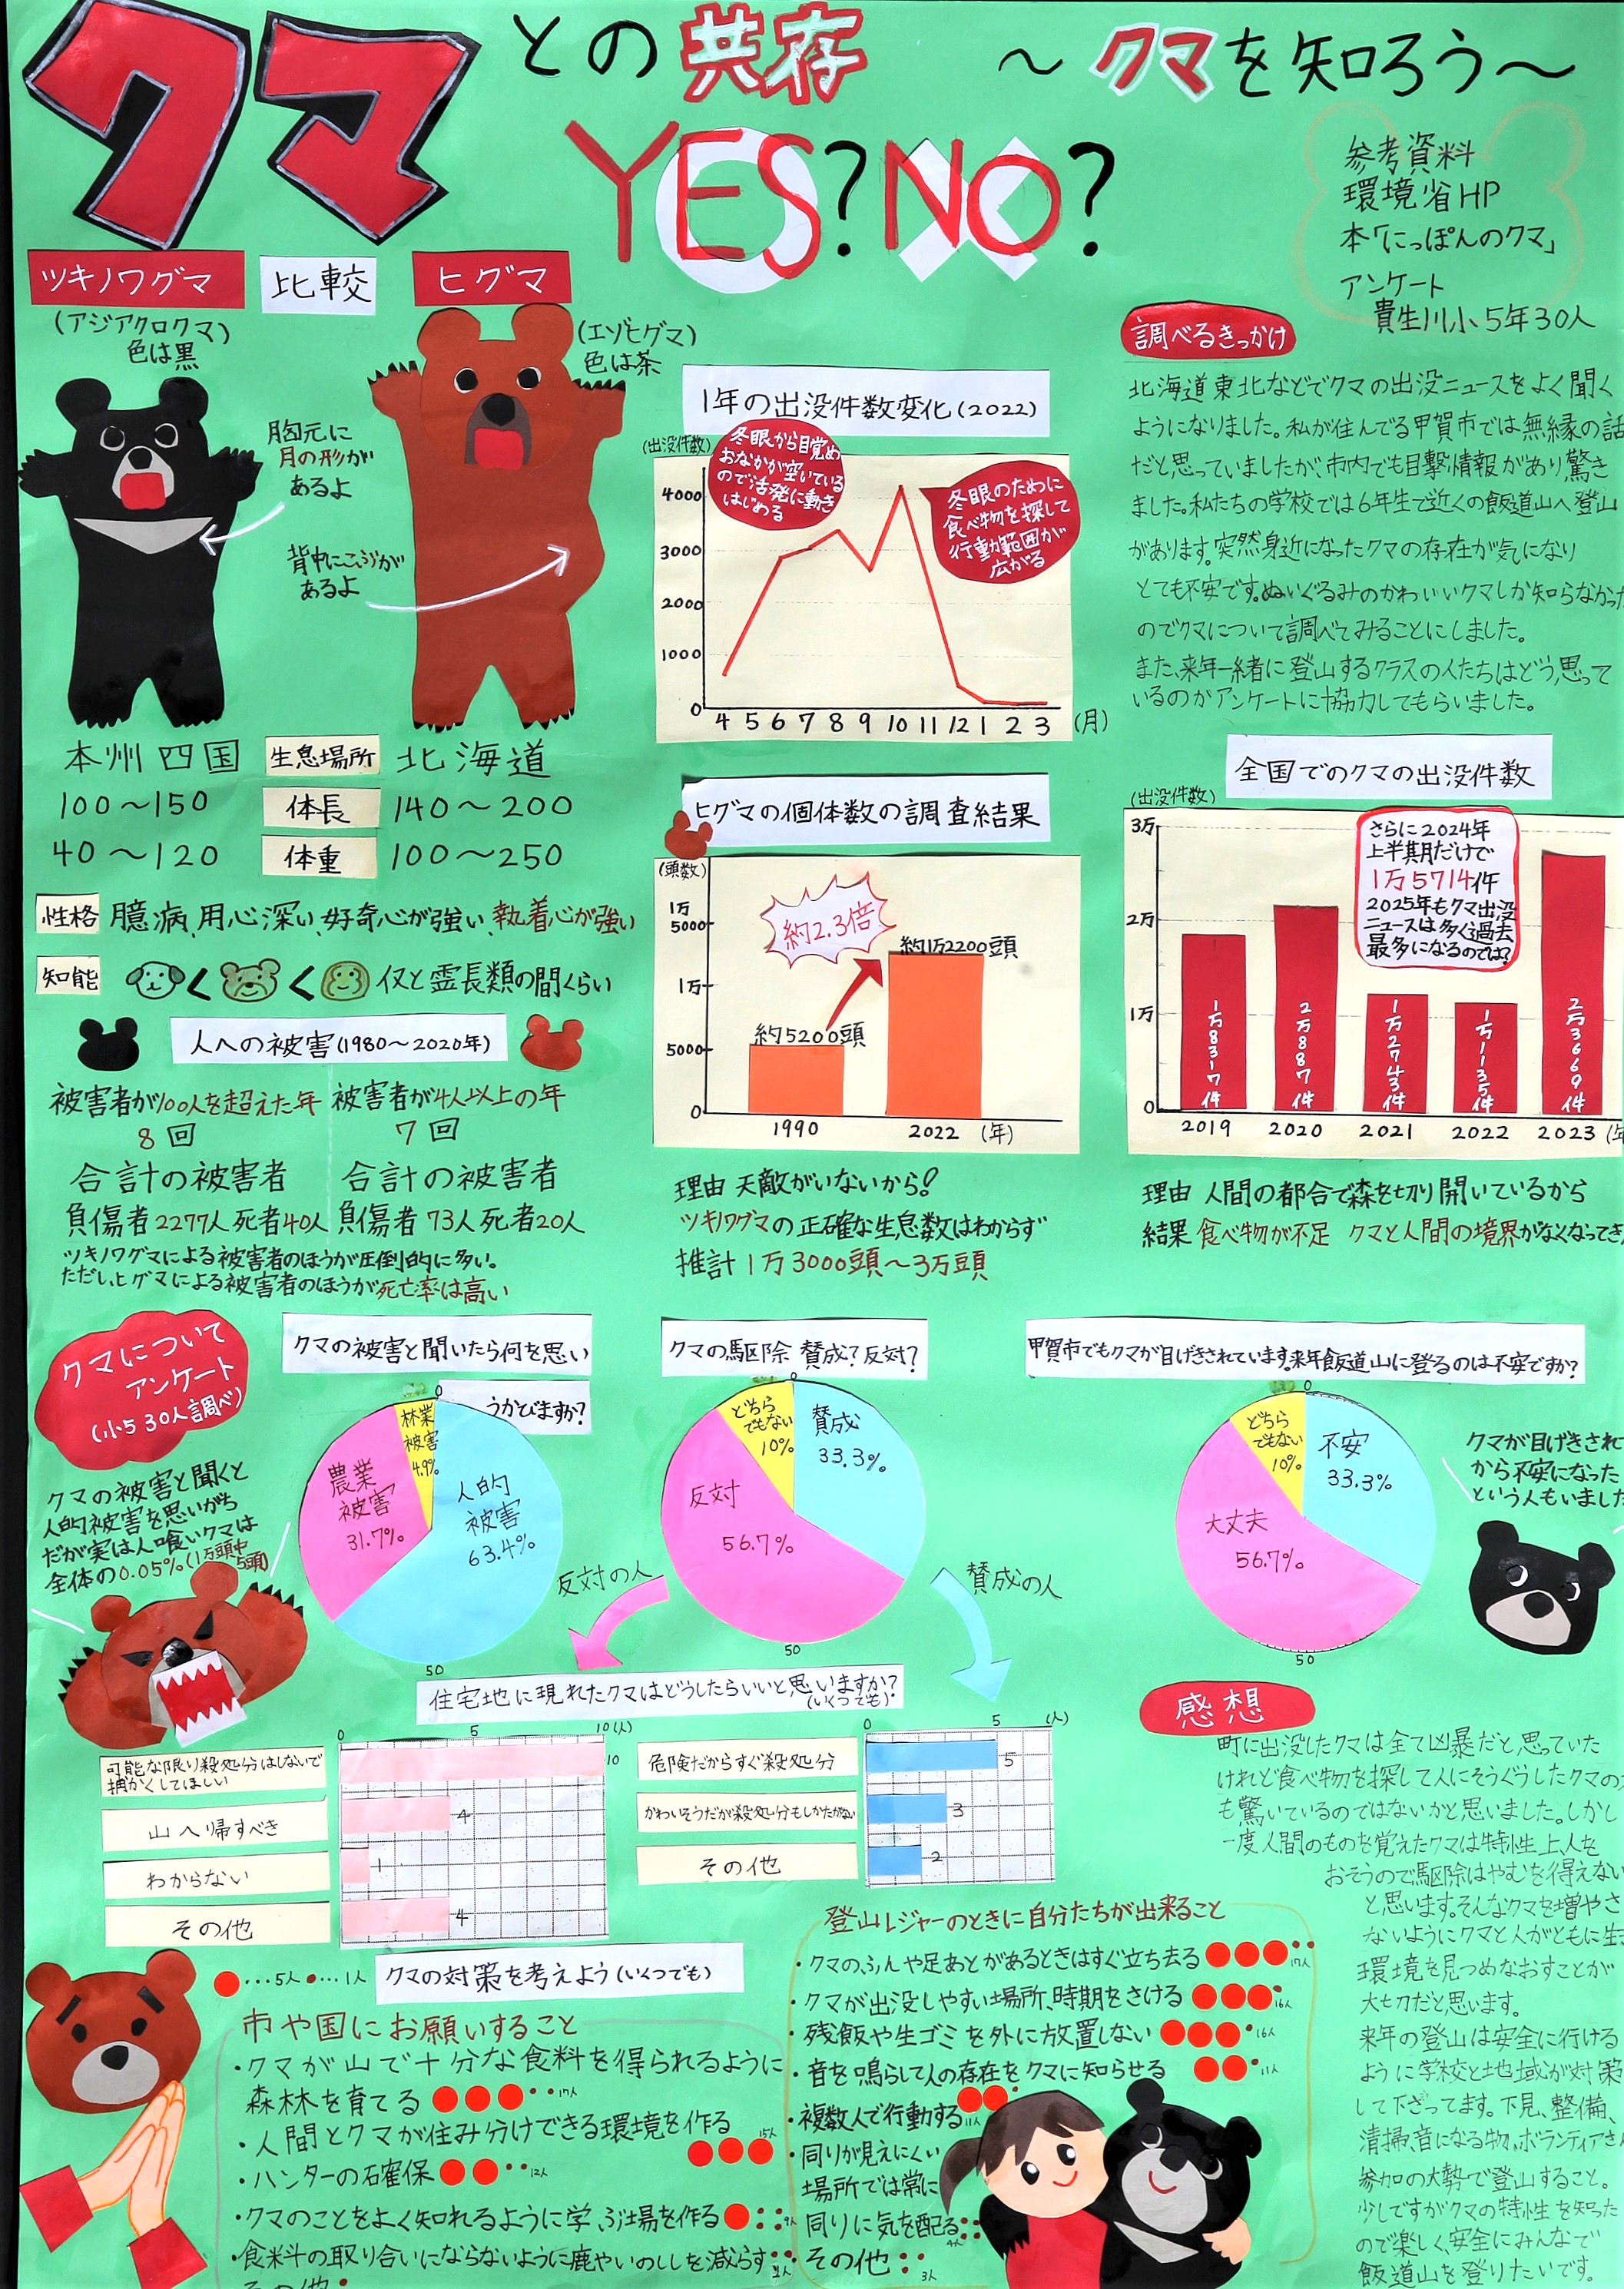 クマとの共存 ～クマを知ろう～
YES?NO?
参考資料
環境省HP
本「にっぽんのクマ」
アンケート
貴生川小5年30人
ツキノワグマ
比較
ヒグマ
(アジアクロクマ)
色は黒
(エゾヒグマ)
色は茶
胸元に
月の形が
あるよ
背中にこぶが
あるよ
本州四国 生息場所 北海道
100～150 体長 140～200
40～120 体重 100～250
性格 臆病、用心深い、好奇心が強い、執着心が強い
知能 < < イヌと霊長類の間くらい
人への被害(1980～2020年)
被害者が100人を超えた年
8回
合計の被害者
負傷者2277人死者40人
被害者が4人以上の年
7回
合計の被害者
負傷者73人死者20人
ツキノワグマによる被害者のほうが圧倒的に多い。
ただし、ヒグマによる被害者のほうが死亡率は高い
1年の出没件数変化(2022)
(出没件数)
冬眠から目覚め
おなかが空いている
ので活発に動き
はじめる
冬眠のために
食べ物を探して
行動範囲が
広がる
4000
3000
2000
1000
0
4 5 6 7 8 9 10 11 12 1 2 3 (月)
ヒグマの個体数の調査結果
(頭数)
1万
5000
1万
5000
0
約2.3倍
約5200頭
約1万2200頭
1990 2022 (年)
理由 天敵がいないから!
ツキノワグマの正確な生息数はわからず
推計1万3000頭～3万頭
調べるきっかけ
北海道東北などでクマの出没ニュースをよく聞く
ようになりました。私が住んでる甲賀市では無縁の話
だと思っていましたが、市内でも目撃情報があり驚き
ました。私たちの学校では6年生で近くの飯道山へ登山
があります。突然身近になったクマの存在が気になり
とても不安です。ぬいぐるみのかわいいクマしか知らなかった
のでクマについて調べてみることにしました。
また、来年一緒に登山するクラスの人たちはどう思って
いるのかアンケートに協力してもらいました。
全国でのクマの出没件数
(出没件数)
3万
2万
1万
0
さらに2024年
上半期月だけで
1万5714件
2025年もクマ出没
ニュースは多く過去
最多になるのでは?
1万8317件
2万887件
1万2743件
1万1135件
2万3669件
2019 2020 2021 2022 2023
理由 人間の都合で森を切り開いているから
結果 食べ物が不足 クマと人間の境界がなくなってき
クマについて
アンケート
(小5 30人調べ)
クマの被害と聞くと
人的被害を思いがち
だが実は人喰いクマは
全体の0.05%(1万頭中
5頭)
クマの被害と聞いたら何を思い
うかびますか?
0
林業
被害
4.9%
農業
被害
31.7%
人的
被害
63.4%
50
クマの駆除 賛成?反対?
0
どちら
でもない
10%
賛成
33.3%
反対
56.7%
50
反対の人
賛成の人
甲賀市でもクマが目げきされています。来年飯道山に登るのは不安ですか?
0
どちら
でもない
10%
不安
33.3%
大丈夫
56.7%
50
クマが目げきされ
から不安になった
という人もいました
住宅地に現れたクマはどうしたらいいと思いますか?
(いくつでも)
0 5 10(人)
可能な限り殺処分はしないで
捕かくしてほしい
10
山へ帰すべき
4
わからない
1
その他
4
0 5 (人)
危険だからすぐ殺処分
5
かわいそうだが殺処分もしかたがない
3
その他
2
…5人 …1人
クマの対策を考えよう(いくつでも)
市や国にお願いすること
・クマが山で十分な食料を得られるように
森林を育てる 17人
・人間とクマが住み分けできる環境を作る
15人
・ハンターの確保 12人
・クマのことをよく知れるように学ぶ場を作る 9人
・食料の取り合いにならないように鹿やいのししを減らす
その他
登山レジャーのときに自分たちが出来ること
・クマのふんや足あとがあるときはすぐ立ち去る 17人
・クマが出没しやすい場所、時期をさける 16人
・残飯や生ゴミを外に放置しない 16人
・音を鳴らして人の存在をクマに知らせる 11人
・複数人で行動する 11人
・周りが見えにくい
場所では常に
周りに気を配る 4人
・その他 3人
感想
町に出没したクマは全て凶暴だと思っていた
けれど食べ物を探して人にそうぐうしたクマの
も驚いているのではないかと思いました。しかし
一度人間のものを覚えたクマは特性上人を
おそうので駆除はやむを得ない
と思います。そんなクマを増やさ
ないようにクマと人がともに生き
環境を見つめなおすことが
大切だと思います。
来年の登山は安全に行ける
ように学校と地域が対策
して下さってます。下見、整備、
清掃、音になる物、ボランティアさん
参加の大勢で登山すること。
少しですがクマの特性を知った
ので楽しく、安全にみんなで
飯道山を登りたいです。